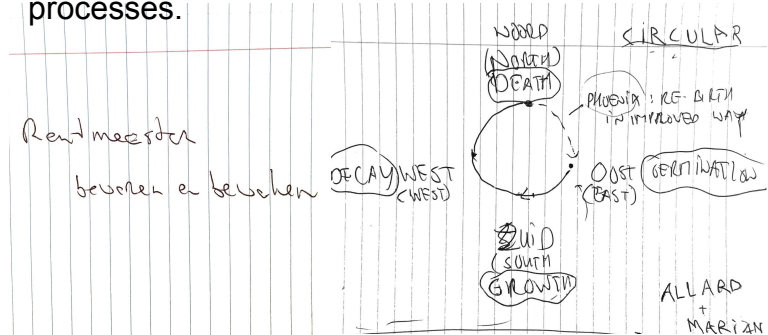 processes.
Rentmeester
bewaren en bewaken
CIRCULAR
NOORD
(NORTH)
DEATH
PHOENIX : RE-BIRTH
IN IMPROVED WAY
DECAY WEST
(WEST)
OOST GERMINATION
(EAST)
ZUID
(SOUTH
GROWTH
ALLARD
+
MARIAN